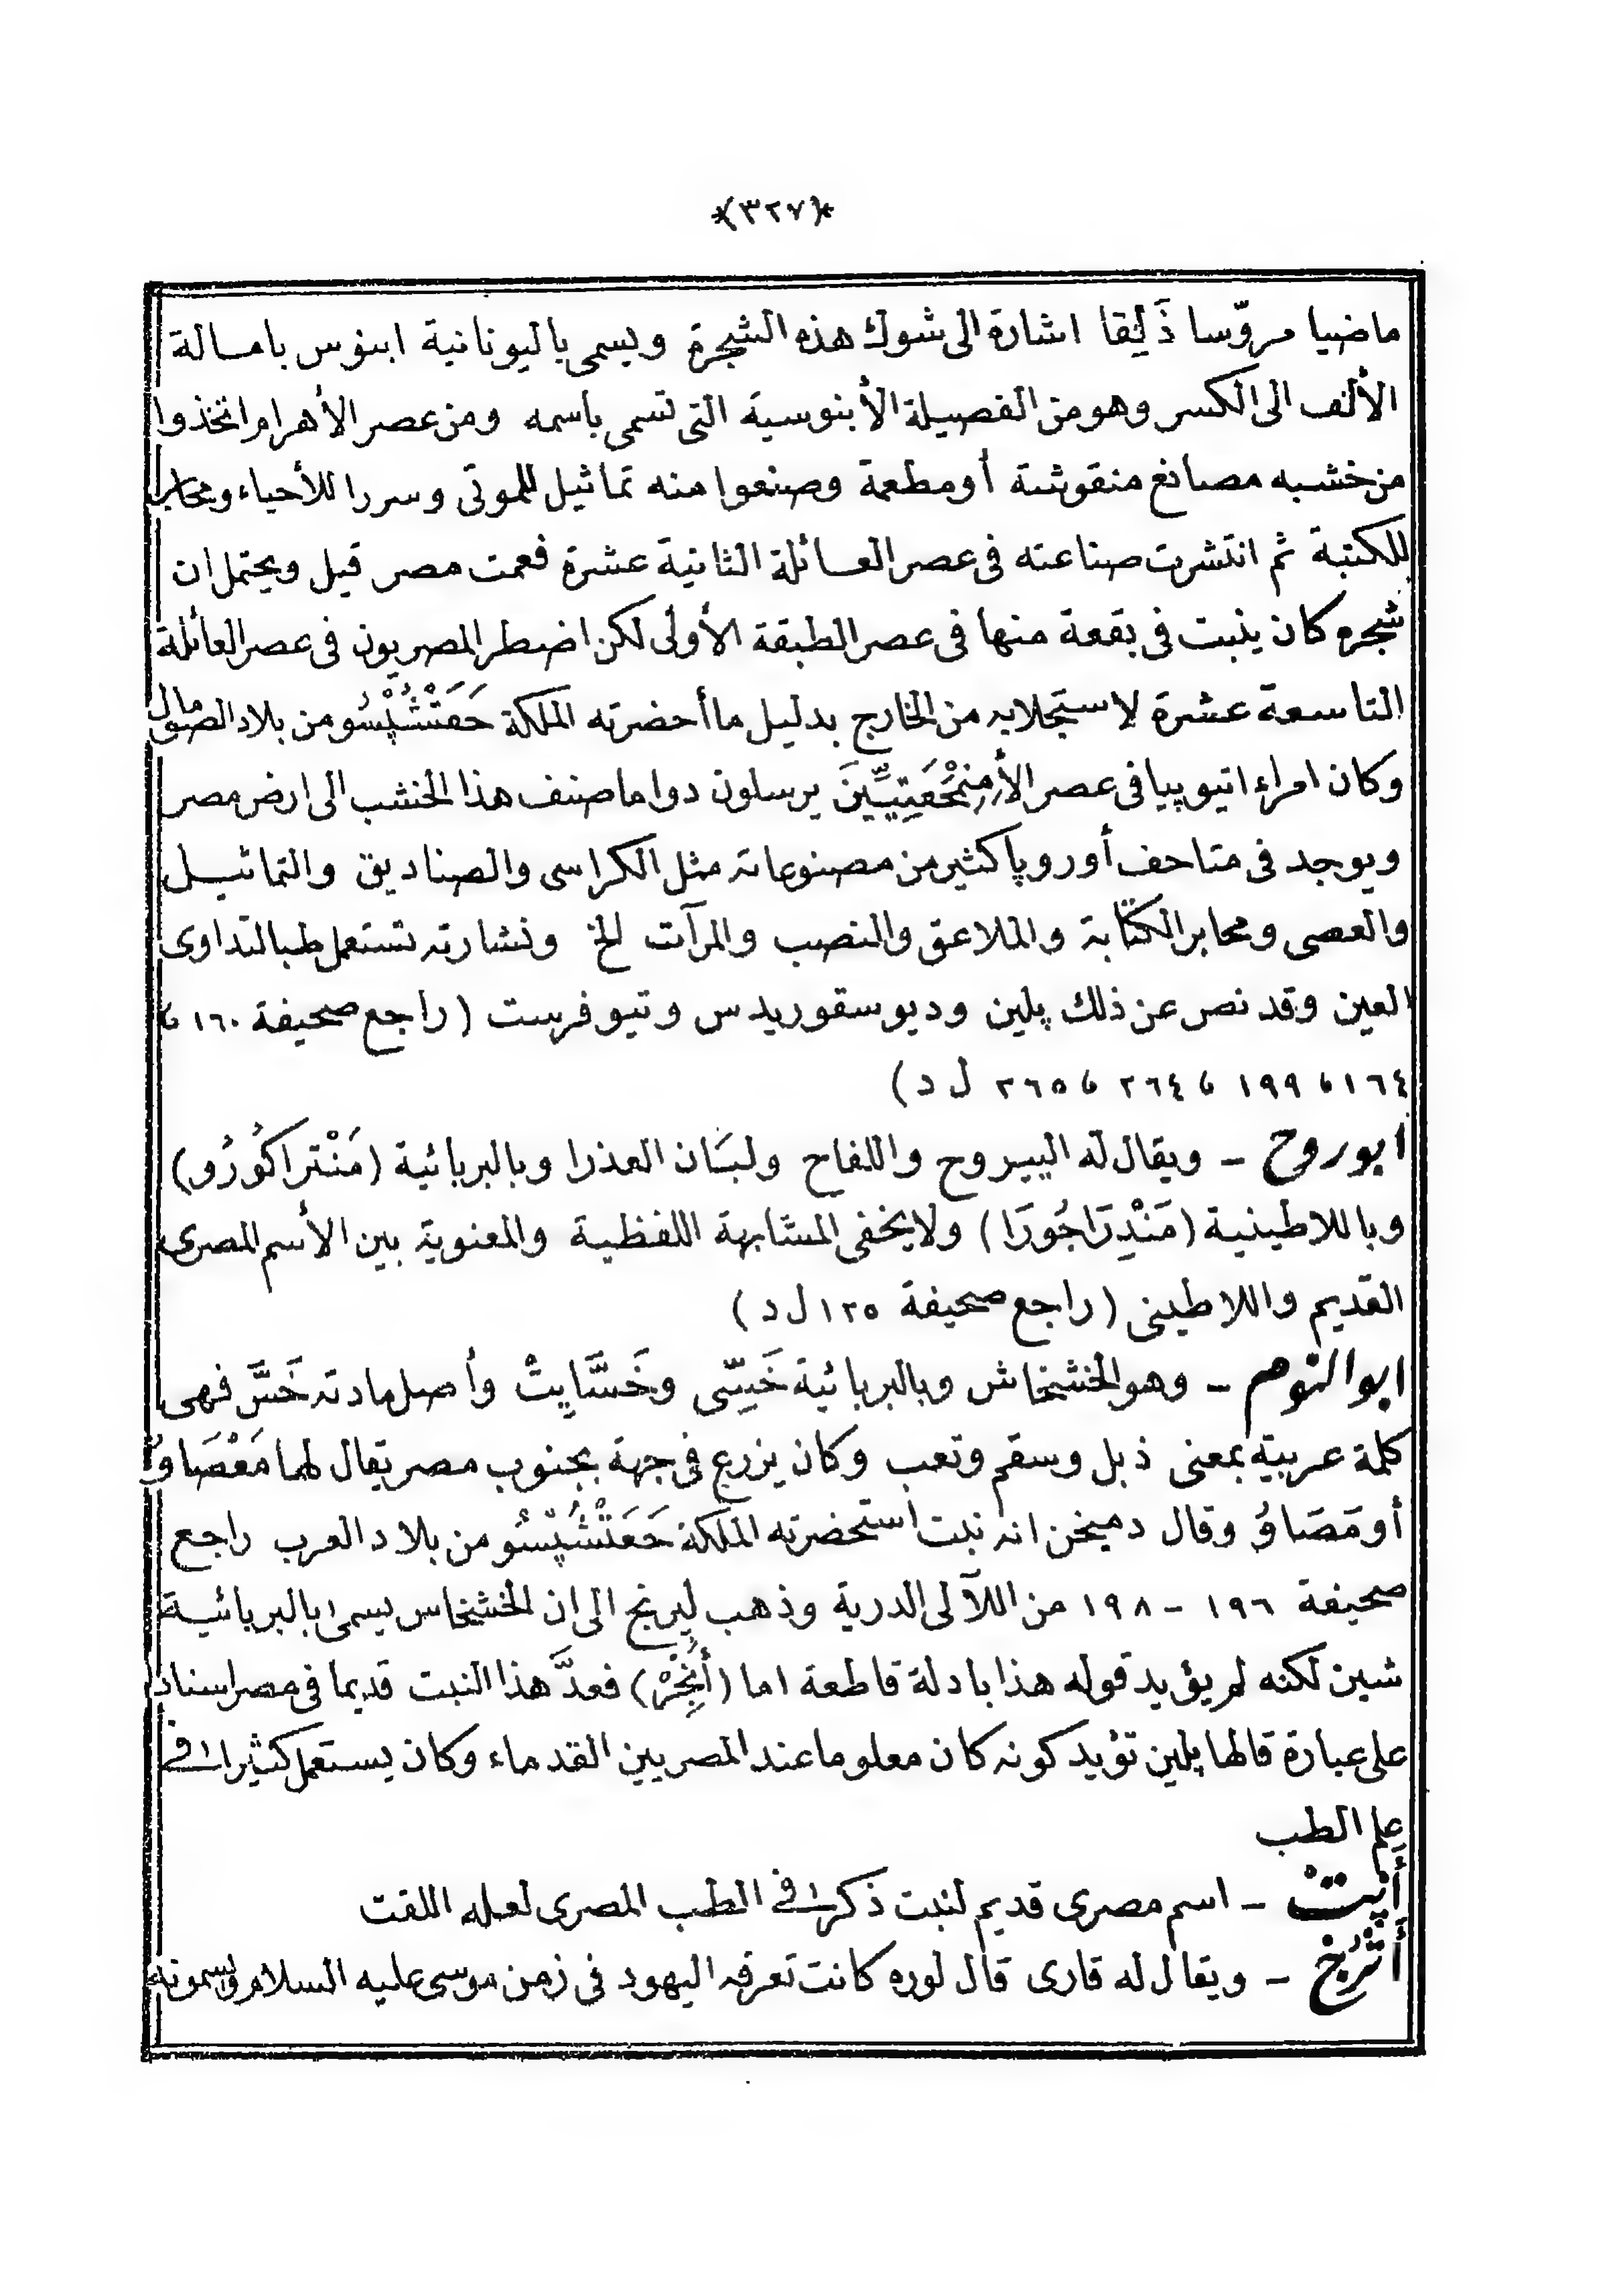 *(٣٢٧)*
ماضيا مروّسا ذَلِيقا اشارة الى شوك هذه الشجرة ويسمى باليونانية ابنوس بامالة
الألف الى الكسر وهو من الفصيلة الأبنوسية التى تسمى باسمه ومن عصر الأهرام اتخذوا
من خشبه مصانع منقوشة أو مطعمة وصنعوا منه تماثيل للموتى وسررا للأحياء ومحابر
للكتبة ثم انتشرت صناعته فى عصر العائلة الثانية عشرة فعمت مصر قيل ويحتمل ان
شجره كان ينبت فى بقعة منها فى عصر الطبقة الأولى لكن اضطر المصريون فى عصر العائلة
التاسعة عشرة لاستجلابه من الخارج بدليل ما أحضرته الملكة حَعَتْشُپْسُو من بلاد الصومال
وكان امراء اتيوپيا فى عصر الأَمِنْحُعْتِپيِّينَ يرسلون دواما صنف هذا الخشب الى ارض مصر
ويوجد فى متاحف أوروپا كثير من مصنوعاته مثل الكراسى والصناديق والتماثيل
والعصى ومحابر الكتابة والملاعق والنصب والمرآت الخ ونشارته تستعمل طبا لتداوى
العين وقد نص عن ذلك پلين وديوسقوريدس وتيوفرست (راجع صحيفة ١٦٠ ،
١٦٤ ، ١٩٩ ، ٢٦٤ ، ٢٦٥ ل د)
ابوروح - ويقال له اليبروح واللفاح ولبَان العذرا وبالبربائية (مَنْتراكُورُو)
وباللاطينية (مَنْدِرَاجُورَا) ولا يخفى المشابهة اللفظية والمعنوية بين الأسم المصرى
القديم واللاطينى (راجع صحيفة ١٢٥ ل د)
ابو النوم - وهو الخشخاش وبالبربائية خَسِّى وخَسَّايِتْ وأصل مادته خَسَّ فهى
كلمة عربية بمعنى ذبل وسقم وتعب وكان يزرع فى جهة بجنوب مصر يقال لها مَعْصَاوُ
أو مَصَاوُ وقال دميخن انه نبت استحضرته الملكة حَعَتْشُپْسُو من بلاد العرب راجع
صحيفة ١٩٦ - ١٩٨ من اللآلى الدرية وذهب ليرنج الى ان الخشخاس يسمى بالبربائية
شين لكنه لم يؤيد قوله هذا بادلة قاطعة اما (أُنْجَرْ) فعدَّ هذا النبت قديما فى مصر اسنادا
على عبارة قالها پلين تؤيد كونه كان معلوما عند المصريين القدماء وكان يستعمل كثيرا فى
علم الطب
أَنِتْ - اسم مصرى قديم لنبت ذكر فى الطب المصرى لعله اللفت
أُتْرُجّ - ويقال له قارى قال لوره كانت تعرفه اليهود فى زمن موسى عليه السلام ويسمونه